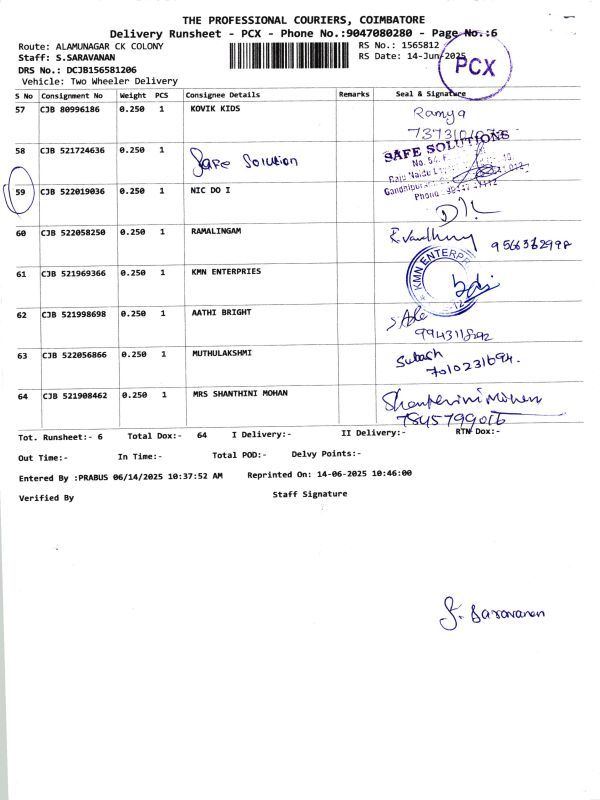 THE PROFESSIONAL COURIERS, COIMBATORE
Delivery Runsheet - PCX - Phone No.:9047080280 - Page No.:6
Route: ALAMUNAGAR CK COLONY
RS No.: 1565812
Staff: S.SARAVANAN
RS Date: 14-Jun-2025
PCX
DRS No.: DCJB156581206
Vehicle: Two Wheeler Delivery
S No Consignment No Weight PCS Consignee Details Remarks Seal & Signature
57 CJB 80996186 0.250 1 KOVIK KIDS Ramya
58 CJB 521724636 0.250 1 Safe Solution SAFE SOLUTIONS
Phone
59 CJB 522019036 0.250 1 NIC DO I
60 CJB 522058250 0.250 1 RAMALINGAM
61 CJB 521969366 0.250 1 KMN ENTERPRIES KMN ENTERPR
62 CJB 521998698 0.250 1 AATHI BRIGHT
63 CJB 522056866 0.250 1 MUTHULAKSHMI Subash
7010231694.
64 CJB 521908462 0.250 1 MRS SHANTHINI MOHAN Shanthini Mohan
7845799016
Tot. Runsheet:- 6 Total Dox:- 64 I Delivery:- II Delivery:- RTN Dox:-
Out Time:- In Time:- Total POD:- Delvy Points:-
Entered By :PRABUS 06/14/2025 10:37:52 AM Reprinted On: 14-06-2025 10:46:00
Verified By Staff Signature
S. Saravanan